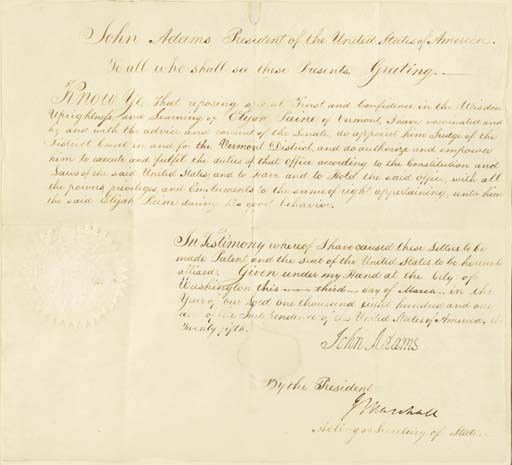 John Adams President of the United States of America.
To all who shall see these Presents, Greeting.
Know Ye, That reposing special Trust and Confidence in the Wisdom
Uprightness and Learning of Elijah Paine of Vermont, I have nominated and
by and with the advice and consent of the Senate do appoint him Judge of the
District Court in and for the Vermont District, and do authorize and empower
him to execute and fulfil the duties of that office according to the Constitution and
Laws of the said United States; and to Have and to Hold the said office, with all
the powers privileges and Emoluments to the same of right appertaining, unto him
the said Elijah Paine during his good behavior.
In Testimony whereof I have caused these Letters to be
made Patent and the Seal of the United States to be hereunto
affixed. Given under my Hand at the City of
Washington this third day of March in the
Year of our Lord one thousand eight hundred and one
of the Independence of the United States of America, the
Twenty fifth.
John Adams
By the President
J Marshall
Acting as Secretary of State.